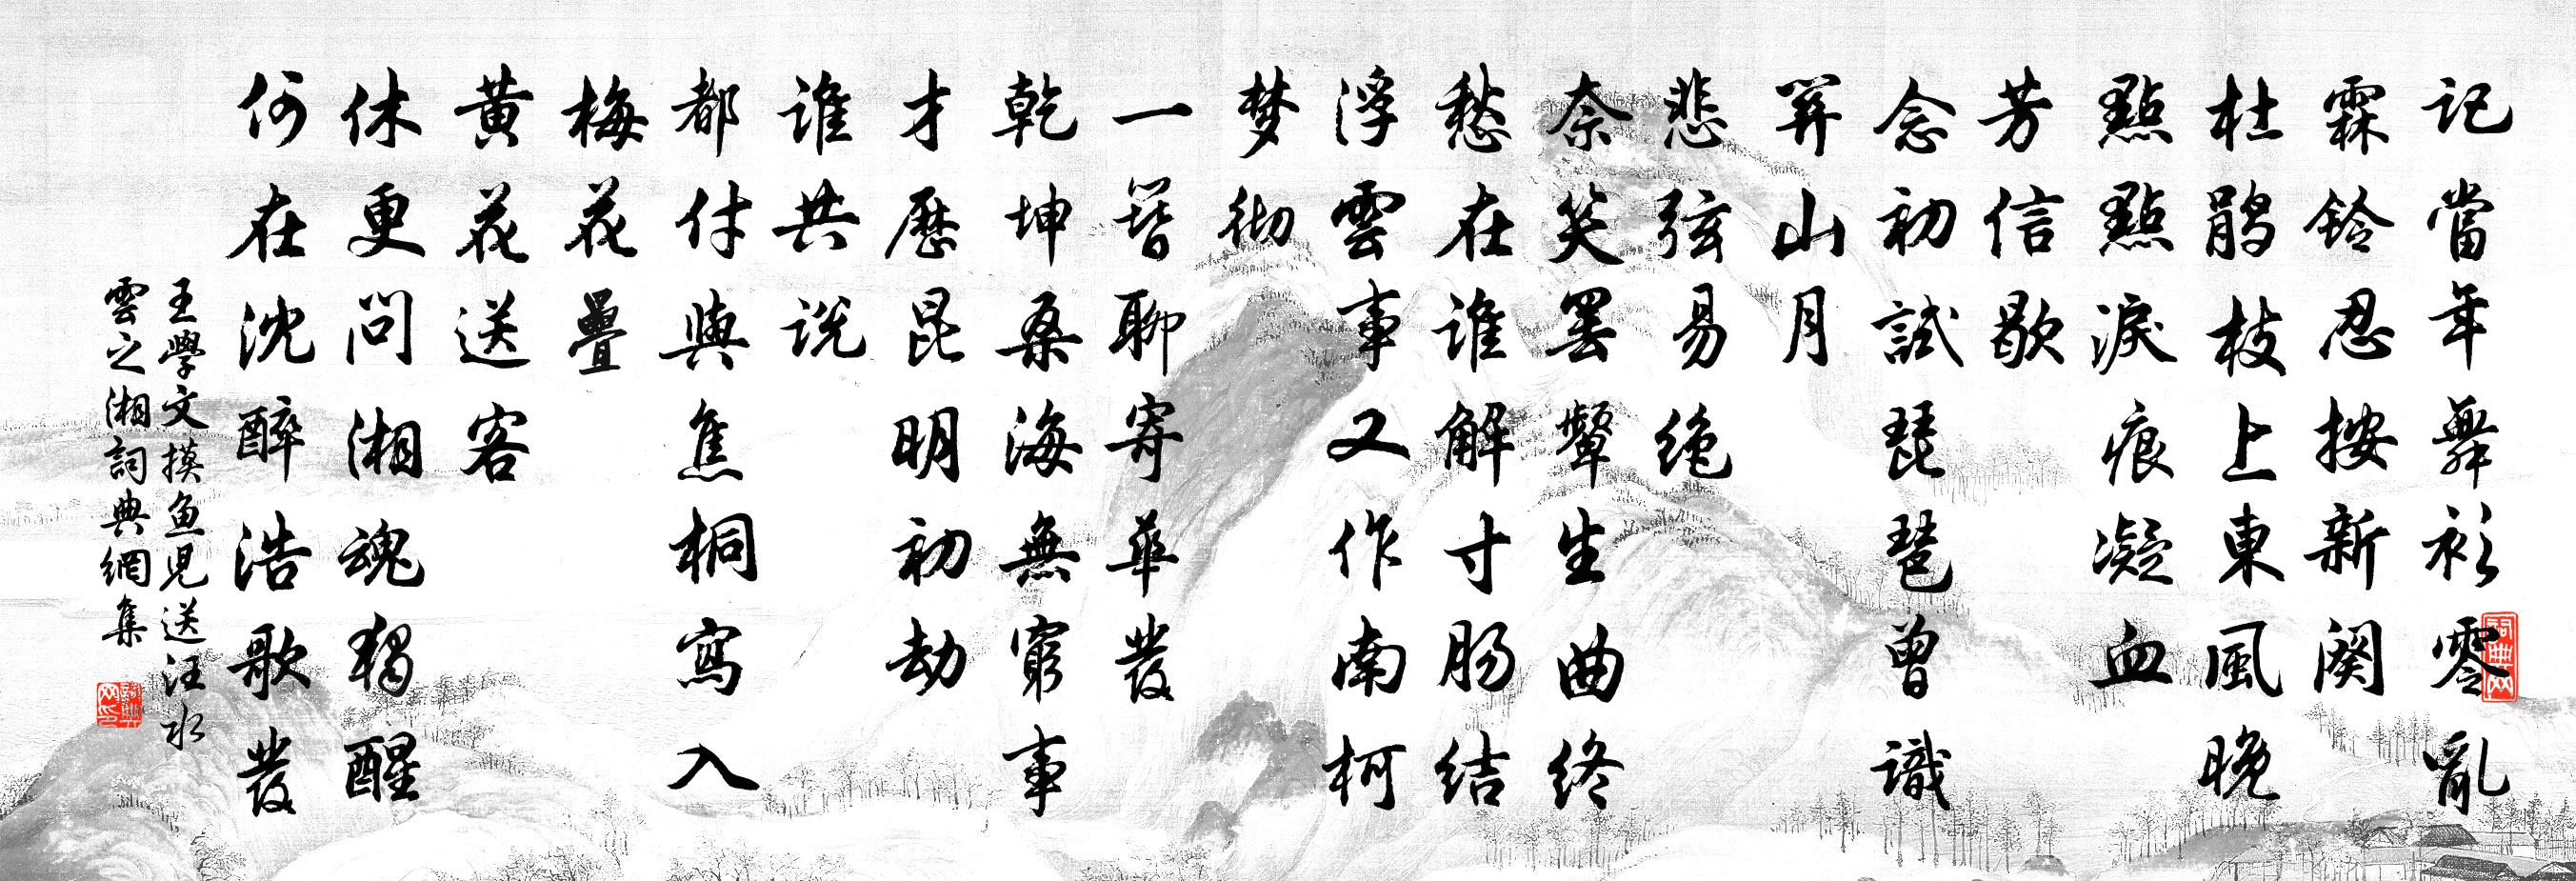 記當年舞衫零亂
霖鈴忍按新闋
杜鵑枝上東風晚
點點淚痕凝血
芳信歇
念初試琵琶曾識
關山月
悲弦易絕
奈笑罷顰生曲終
愁在誰解寸腸結
浮雲事又作南柯
梦徹
一簪聊寄華發
乾坤桑海無窮事
才歷昆明初劫
誰共說
都付與焦桐寫入
梅花疊
黃花送客
休更問湘魂獨醒
何在沈醉浩歌發
王學文摸魚兒送汪水
雲之湘詞典網集